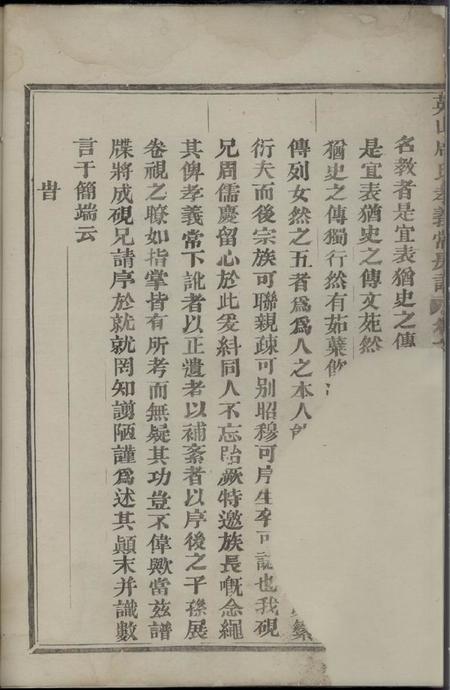 英山周氏孝義常房譜
名教者是宜表猶史之傳
是宜表猶史之傳文苑然
猶史之傳獨行然有茹蘗飲
傳列女然之五者爲爲人之本人能
繫
衍夫而後宗族可聯親疎可別昭穆可序生卒可誌也我硯
兄周儒慶留心於此爰糾同人不忘貽厥特邀族長嘅念繩
其俾孝義常下訛者以正遺者以補紊者以序後之子孫展
卷視之瞭如指掌皆有所考而無疑其功豈不偉歟當茲譜
牒將成硯兄請序於就就罔知謭陋謹爲述其顛末并識數
言于簡端云
旹